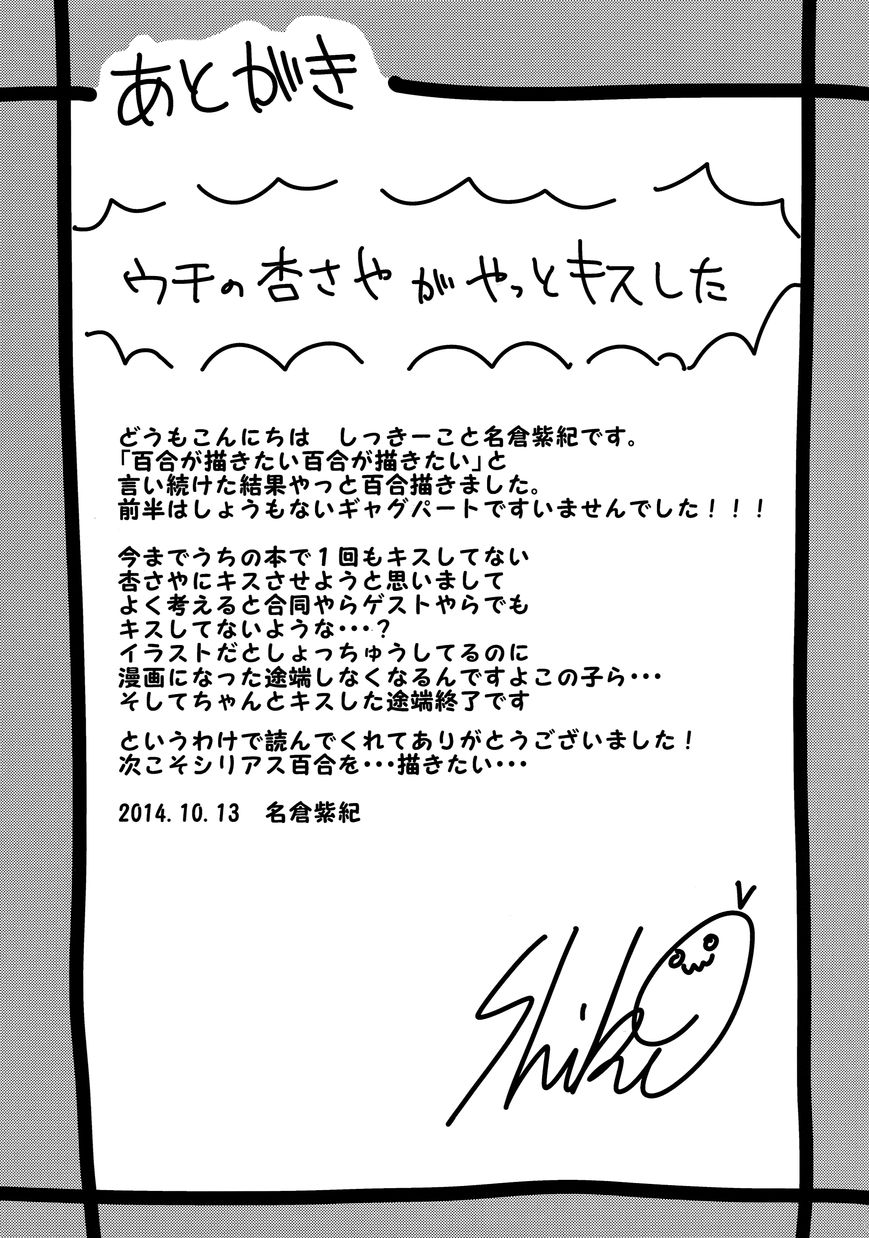 あとがき
ウチの杏さやがやっとキスした
どうもこんにちは　しっきーこと名倉紫紀です。
「百合が描きたい百合が描きたい」と
言い続けた結果やっと百合描きました。
前半はしょうもないギャグパートですいませんでした！！！
今までうちの本で１回もキスしてない
杏さやにキスさせようと思いまして
よく考えると合同やらゲストやらでも
キスしてないような・・・？
イラストだとしょっちゅうしてるのに
漫画になった途端しなくなるんですよこの子ら・・・
そしてちゃんとキスした途端終了です
というわけで読んでくれてありがとうございました！
次こそシリアス百合を・・・描きたい・・・
2014.10.13　名倉紫紀
Shiki